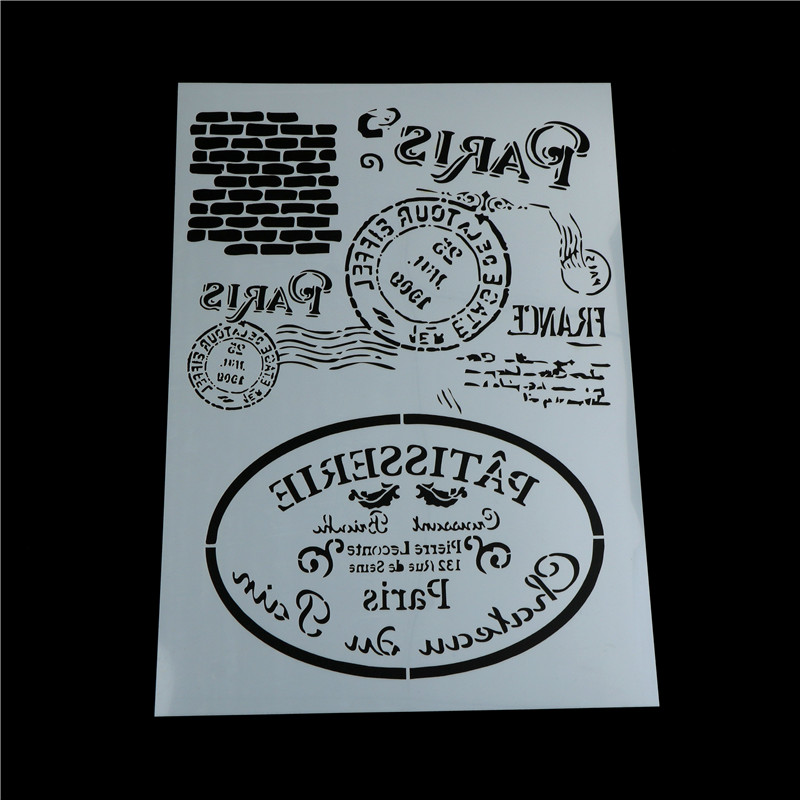 PARIS
DE LA TOUR EIFFEL
25
1909
PARIS
FRANCE
DE LA TOUR EIFFEL
25
1909
PÂTISSERIE
Croissant Brioche
Pierre Leconte
132 Rue de Seine
Paris
Chateau du Pain